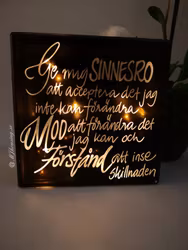 Ge mig SINNESRO
att acceptera det jag
inte kan förändra
MOD att förändra det
jag kan och
Förstånd att inse
skillnaden